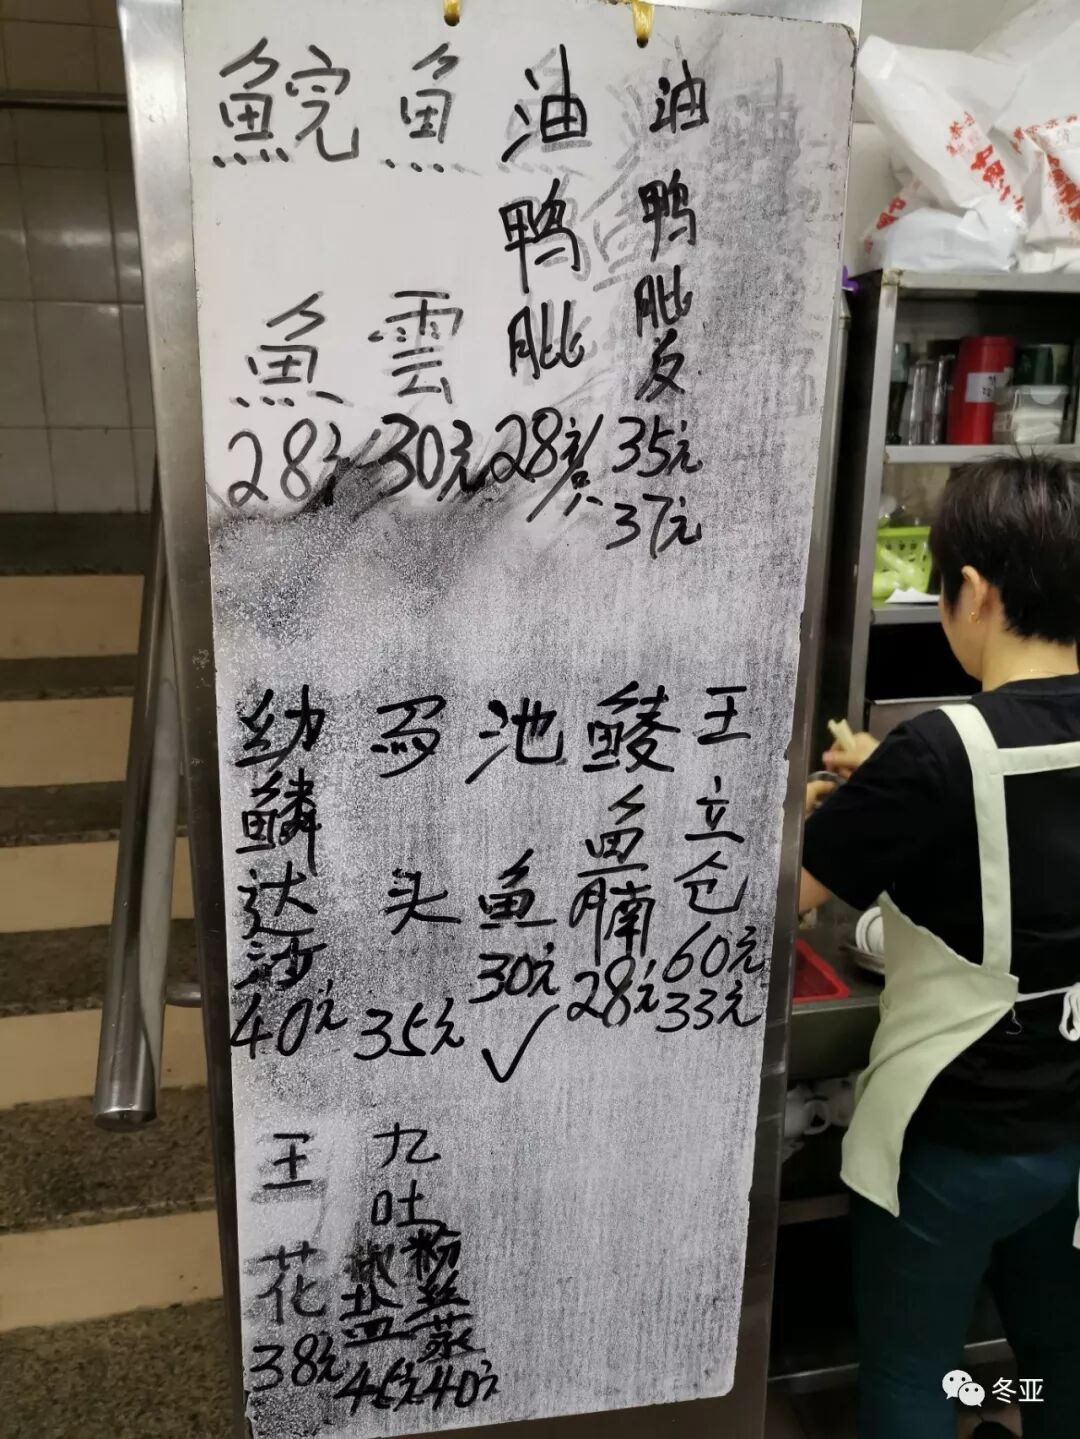 鯇魚
28元
魚雲
30元
油鸭
28元
油鸭
35元
37元
幼鳞达沙
40元
头
35元
池鱼
30元
鲮鱼腩
28元
王立仓
60元
33元
王花
38元
九吐
椒盐
45元
粉丝蒸
40元
冬亚